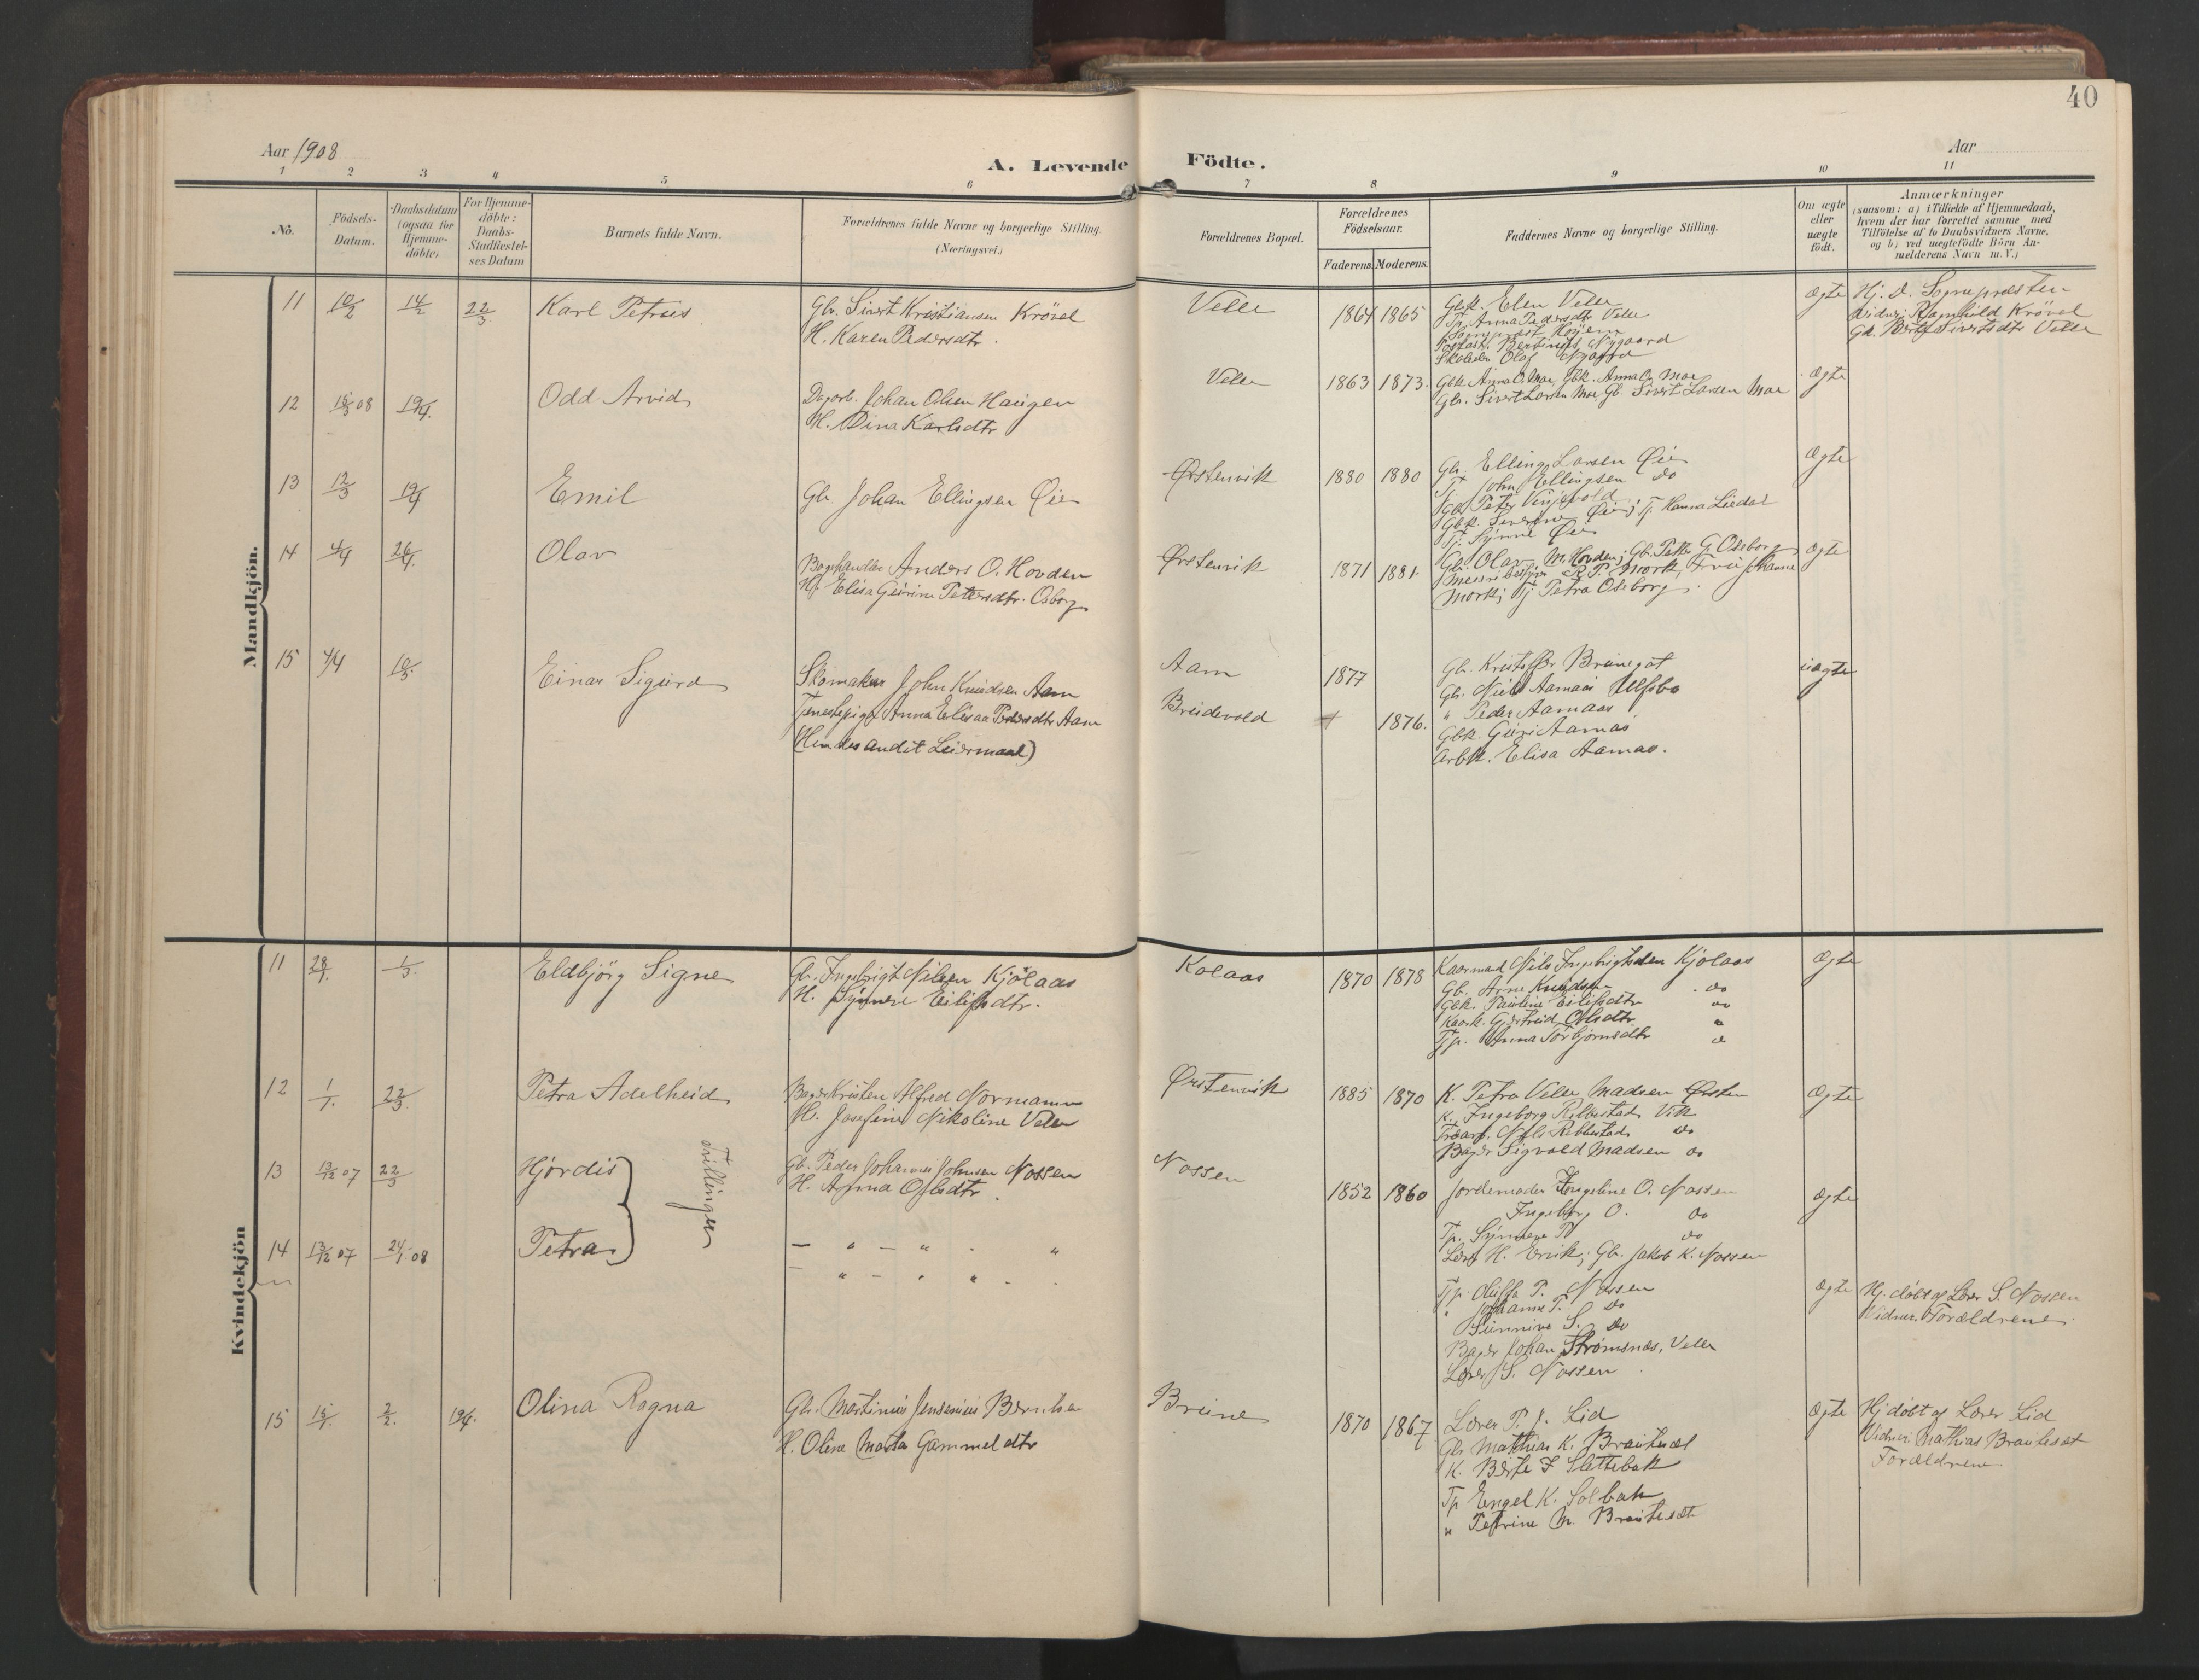 40
Aar 1908
Aar
A. Levende Födte.
1 2 3 4 5 6 7 8 9 10 11
No.
Födsels-Datum.
Daabsdatum (ogsaa for Hjemme-döbte)
For Hjemme-döbte: Daabs-Stadfæstel-ses Datum
Barnets fulde Navn.
Forældrenes fulde Navne og borgerlige Stilling. (Næringsvei.)
Forældrenes Bopæl.
Forældrenes Födselsaar.
Faderens. Moderens.
Faddernes Navne og borgerlige Stilling.
Om ægte eller uægte födt.
Anmærkninger
(saasom: a) i Tilfælde af Hjemmedaab,
hvem der har forrettet samme med
Tilföielse af to Daabsvidners Navne,
og b) ved uægtefödte Börn An-
melderens Navn m.V.)
Mandkjön.
11 10/2 14/2 22/3 Karl Petrus
Gbr. Sivert Kristiansen Krövel
H. Karen Pedersdtr.
Velle 1864 1865
Gbk. Elen Velle
Tp. Anna Pedersdtr Velle
Sogneprest Höjem
Postast. Nygaard
Skoleelev Olaf Nygaard
Ægte
Hj. d. Sognepræsten
Vidner: Ragnhild Krövel
Gk. Berte Sivertsdtr Velle
12 15/3 08 19/4. Odd Arvid
Dagarb. Johan Olsen Haugen
H. Dina Karlsdtr
Velle 1863 1873.
Gbk Anna O. Moe, Gbk. Anna O. Moe
Gbr. Sivert Larsen Moe, Gb. Sivert Larsen Moe
Ægte
13 12/3 19/4 Emil
Gbr. Johan Ellingsen Øie
Ørstenvik 1880 1880
Gbr. Elling Larsen Øie
Tj. John Ellingsen do
Gbr. Peter Vinjevold
Gbk. Severine Øie; Tj. Hanna Liedal
Tj. Synnve Øie
Ægte
14 4/4 26/4. Olav
Boghandler Anders O. Hovden
H. Elisa Gurine Petersdtr. Osborg
Ørstenvik 1871 1881.
Gb. Olav M. Hovden; Gbr. Petter G. Oseborg
Meieribestyrer R. P. Mork, Fru Johanne
Mork; Tj Petra Oseborg.
Ægte
15 4/4 10/5. Einar Sigurd
Skomaker John Knudsen Aam
Tjenestepige Anna Elisa Pedersdtr Aam
(Hendes andet Leiermaal)
Aam 1877
Breidevold 1876.
Gb. Kristoffer Brunegot
Gb. Nils Aamaas Ulfsbo
" Peder Aamaas
Gbk. Guri Aamas
Arbk. Elisa Aamas.
uægte
Kvindekjön
11 28/1. 1/3. Eldbjörg Signe
Gb. Ingebrigt Nilsen Kjölaas
H. Synneve Eilifsdtr.
Kolaas 1870 1878
Kaarmand Nils Ingebrigtsen Kjölaas
Gb. Arne Knudsen do
Gbk. Pauline Eilifsdtr do
Kaark. Gjertrud Olsdtr "
Tp. Anna Torbjörnsdtr "
Ægte
12 1/1. 22/3. Petra Adelheid
Bager Kristen Alfred Normann
H. Josefine Nikoline Velle
Ørstenvik 1885 1870
K. Petra Velle Madsen Ørsten
K. Ingeborg Rebbestad Vik
Nils Rebbestad do
Bager Sigvald Madsen do
Ægte
13 13/12 07 22/3 Hjördis
Trillinger
Gb. Peder Johannes Johnsen Nossen
H. Anna Olsdtr.
Nossen 1852 1860
Jordemoder Ingeline O. Nossen
Ingeborg O. do
Tp. Synneve P do
Lærer H. Ervik; Gb. Jakob K. Nossen
Ægte
14 13/12 07 24/1 08 Petra
— " — " - "
— " — " " - -
Tp. Oluffa P. Nossen
" Johanne P. do
Sunniva S. do
Bager Johan Strömsnes, Velle
Lærer S. Nossen
Ægte
Hj. döbt af Lærer S. Nossen
Vidner: Forældrene.
15 15/1. 2/2. 19/4. Olina Ragna
Gb. Martinus Jensenius Berntsen
H. Oline Marta Gammelsdtr
Brune 1870 1867
Lærer P. J. Lid
Gb. Mathias K. Brauteset
K. Berte I Slettebak
Tp Engel K. Solbak
" Petrine M. Brauteset
Ægte
Hj döbt af Lærer Lid
Vidner: Mathias Brauteset
Forældrene